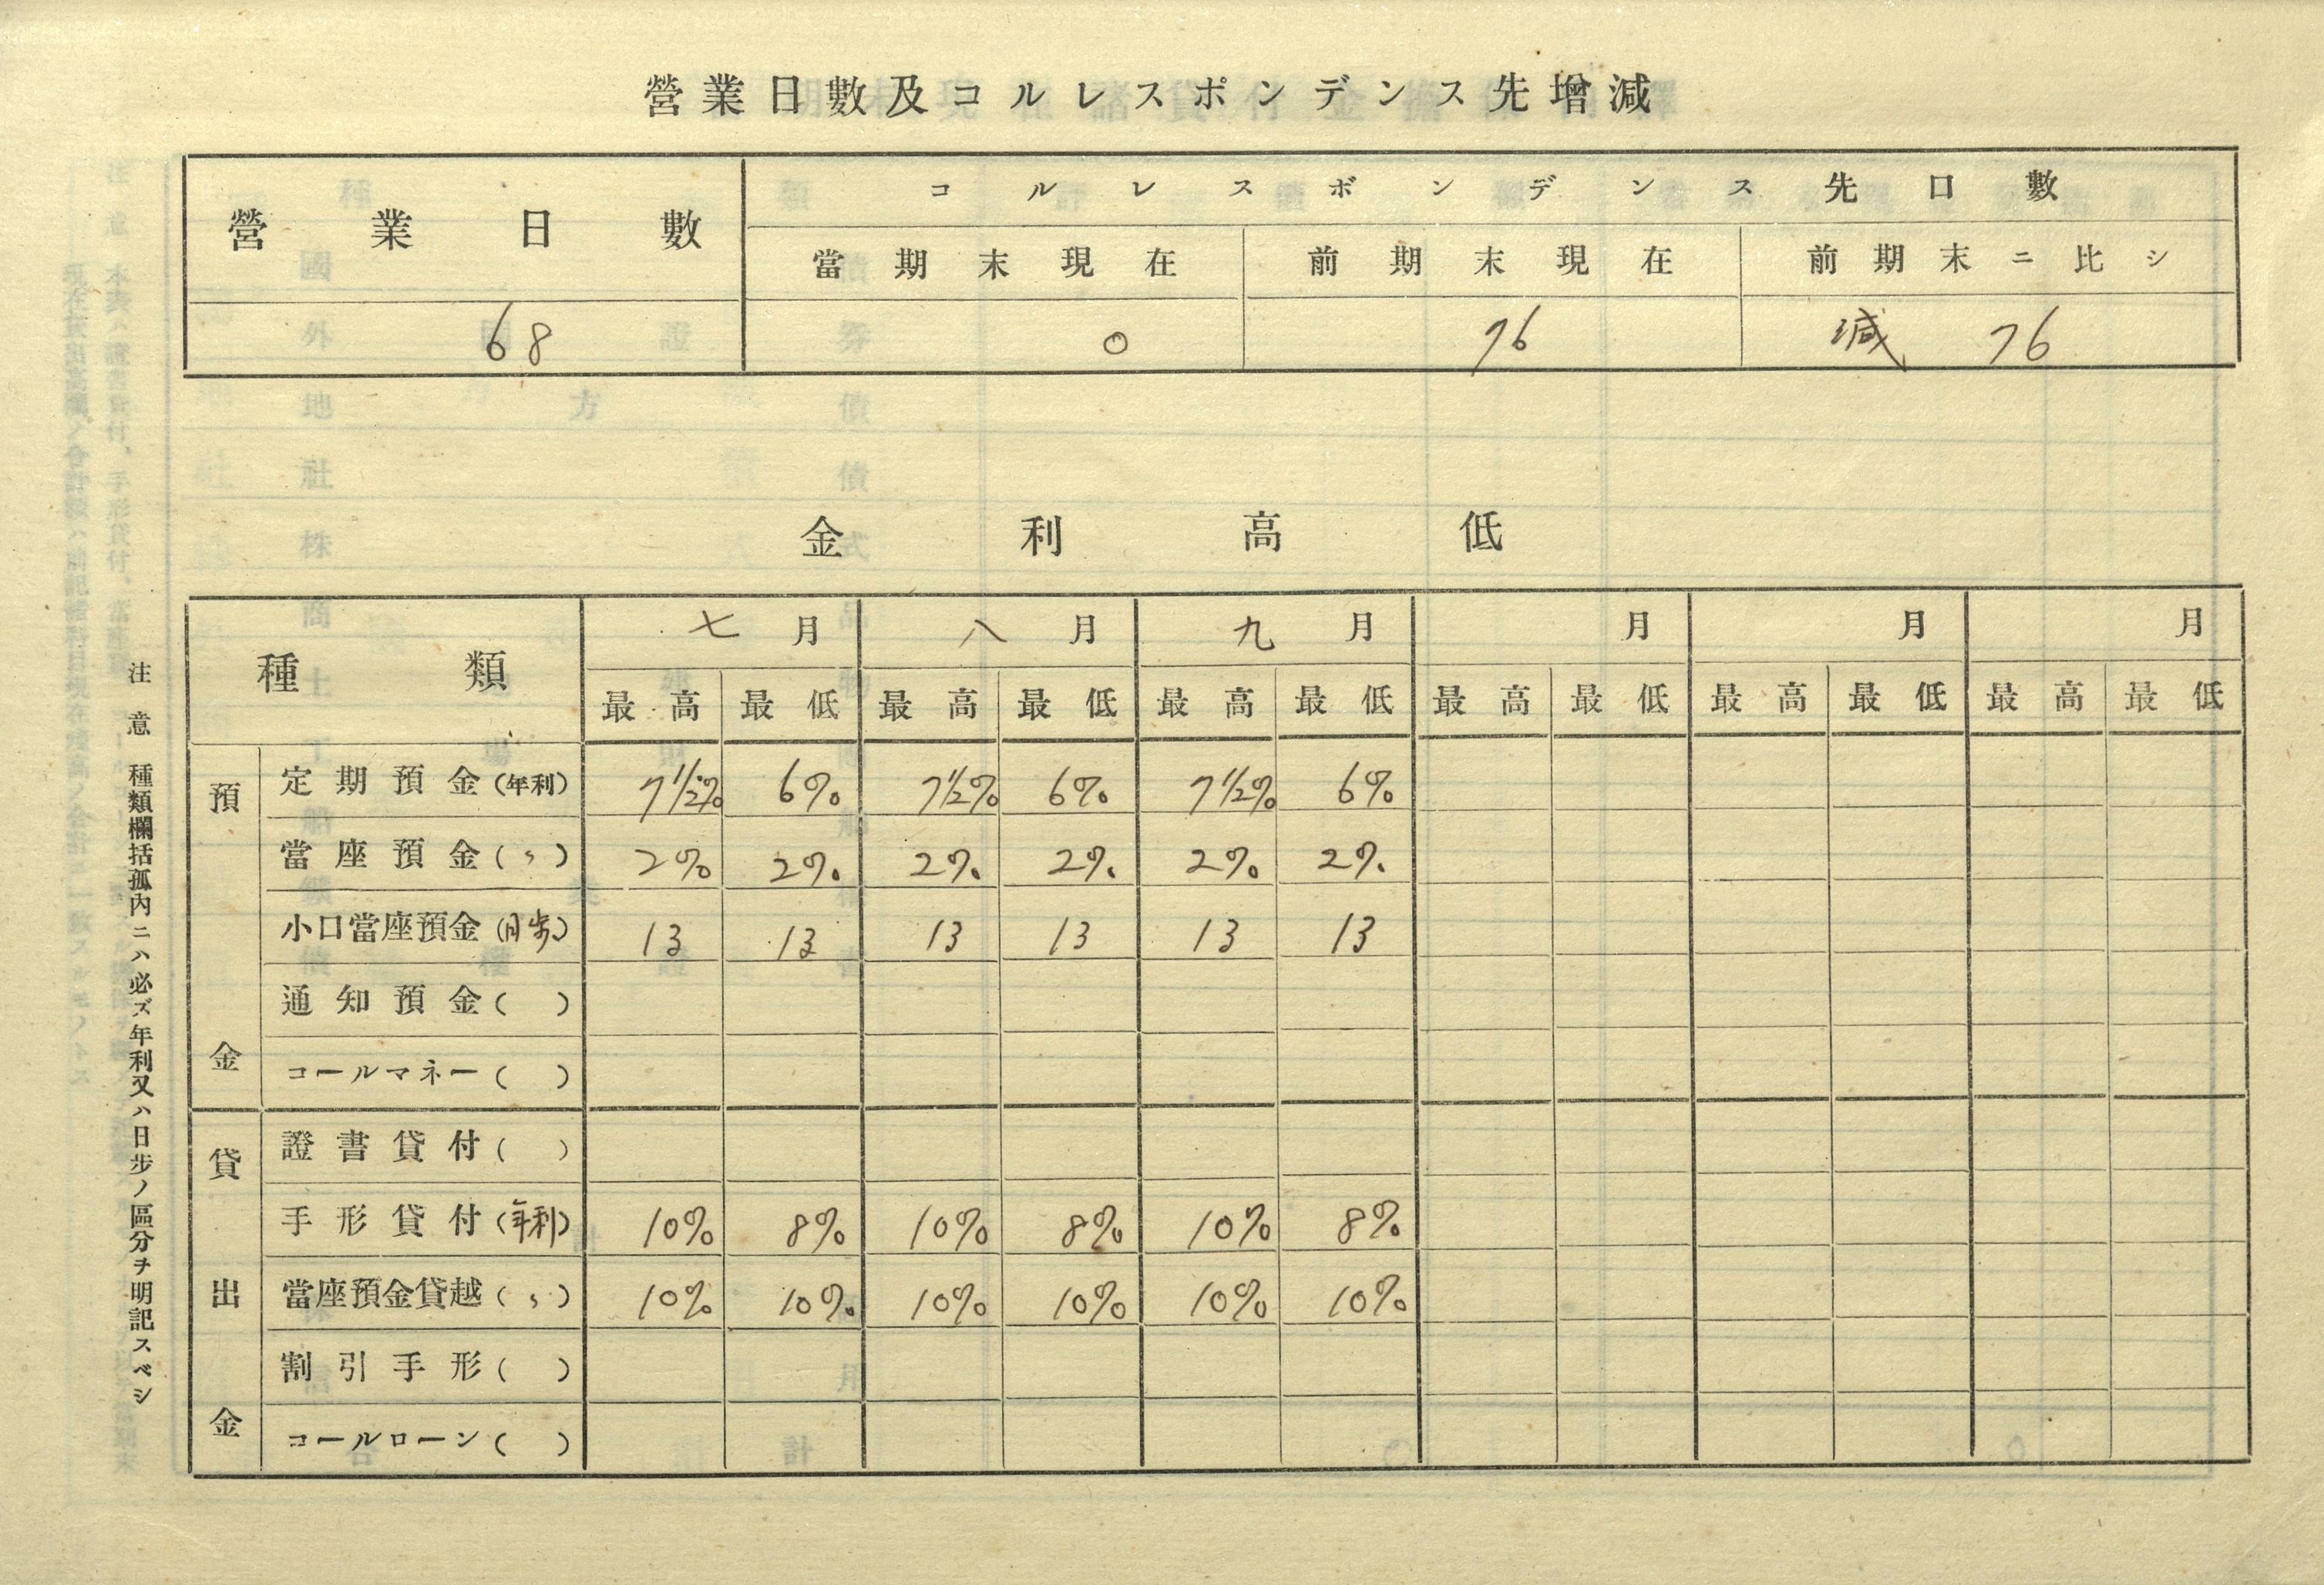 營業日數及コルレスポンデンス先增減
營業日數 コルレスポンデンス先口數
當期末現在 前期末現在 前期末ニ比シ
68 0 76 減 76
金利高低
種類 七月 八月 九月 月 月 月
最高 最低 最高 最低 最高 最低 最高 最低 最高 最低 最高 最低
預金
定期預金(年利) 7 1/2% 6% 7 1/2% 6% 7 1/2% 6%
當座預金(〃) 2% 2% 2% 2% 2% 2%
小口當座預金(日歩) 13 13 13 13 13 13
通知預金( )
コールマネー( )
貸出金
證書貸付( )
手形貸付(年利) 10% 8% 10% 8% 10% 8%
當座預金貸越(〃) 10% 10% 10% 10% 10% 10%
割引手形( )
コールローン( )
注意 種類欄括孤內ニハ必ズ年利又ハ日步ノ區分ヲ明記スベシ